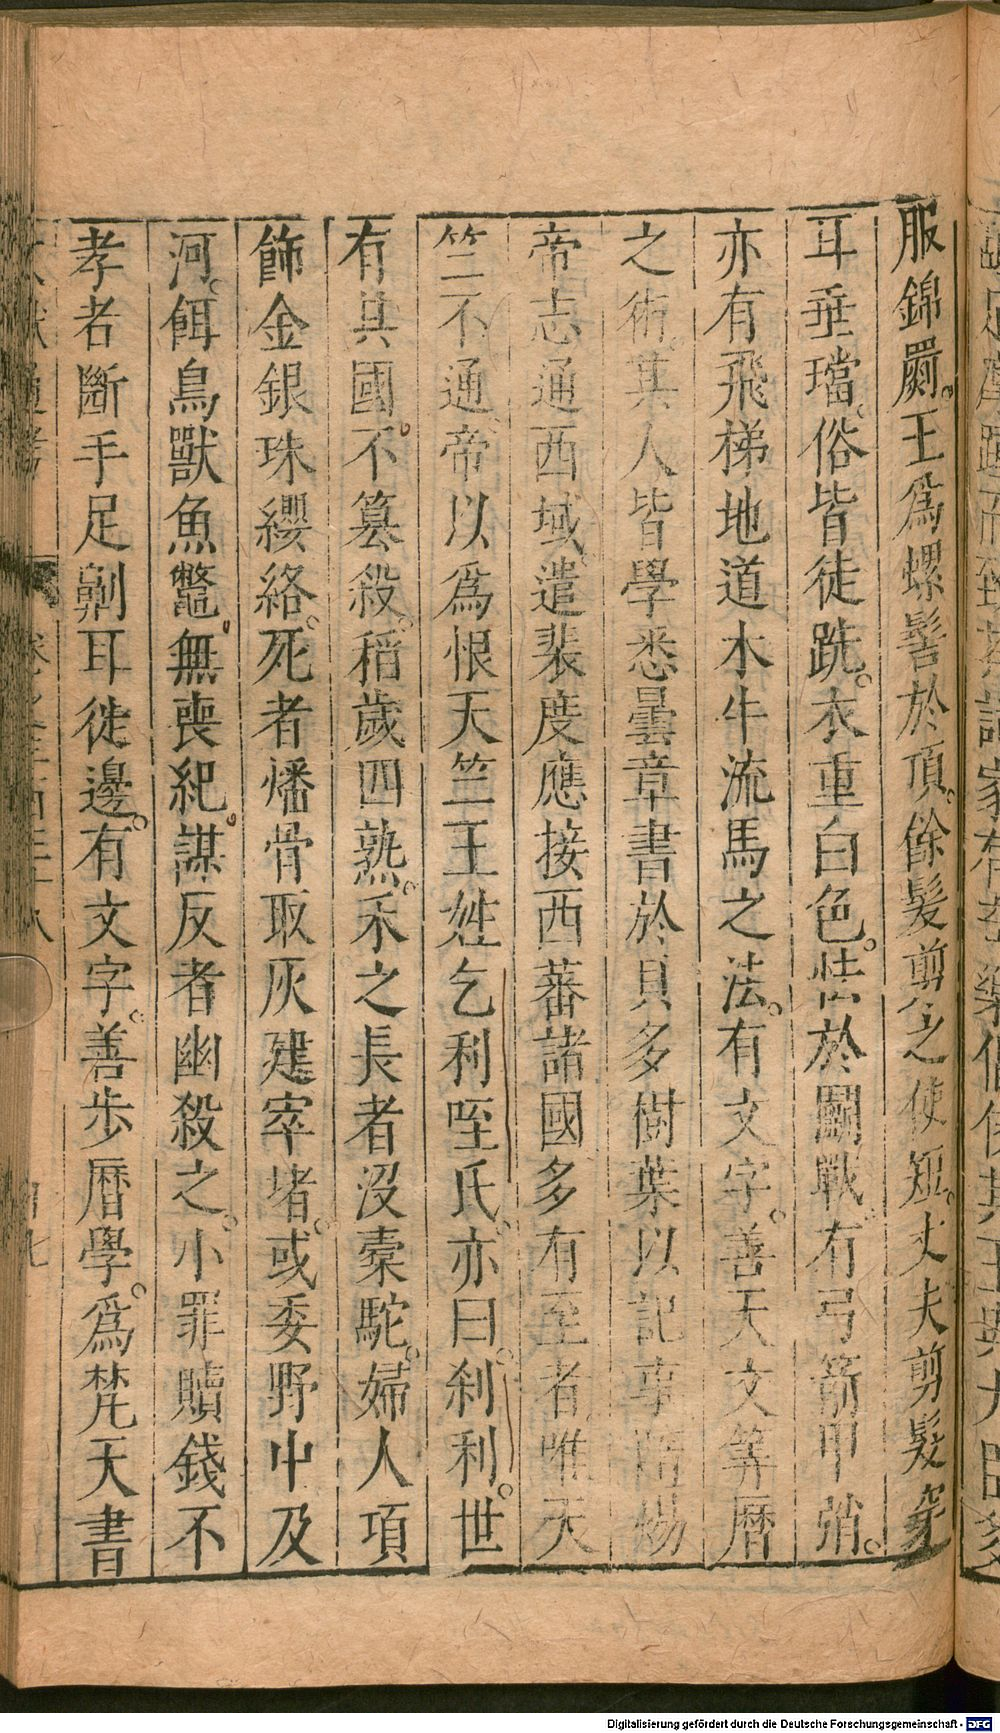 服錦罽。王爲螺髻於頂。餘髮剪之使短。丈夫剪髮穿
耳垂璫。俗皆徒跣。衣重白色。怯於鬬戰。有弓箭甲矟。
亦有飛梯地道木牛流馬之法。有文字。善天文算曆
之術。其人皆學悉曇章書於貝多樹葉以記事隋煬
帝志通西域。遣裴度應接西蕃諸國多有至者唯天
竺不通。帝以爲恨天竺王姓乞利咥氏。亦曰。刹利。世
有其國。不篡殺。稻歲四熟。禾之長者沒橐駝。婦人項
飾金銀珠纓絡。死者燔骨取灰建窣堵。或委野中及
河。餌鳥獸魚鼈。無喪紀。謀反者幽殺之。小罪贖錢不
孝者斷手足劓耳徙邊。有文字。善步曆學。爲梵天書
Digitalisierung gefördert durch die Deutsche Forschungsgemeinschaft - DFG